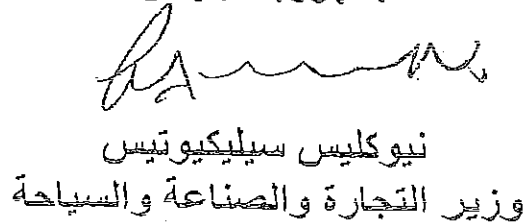 نيوكليس سيليكيوتيس
وزير التجارة والصناعة والسياحة